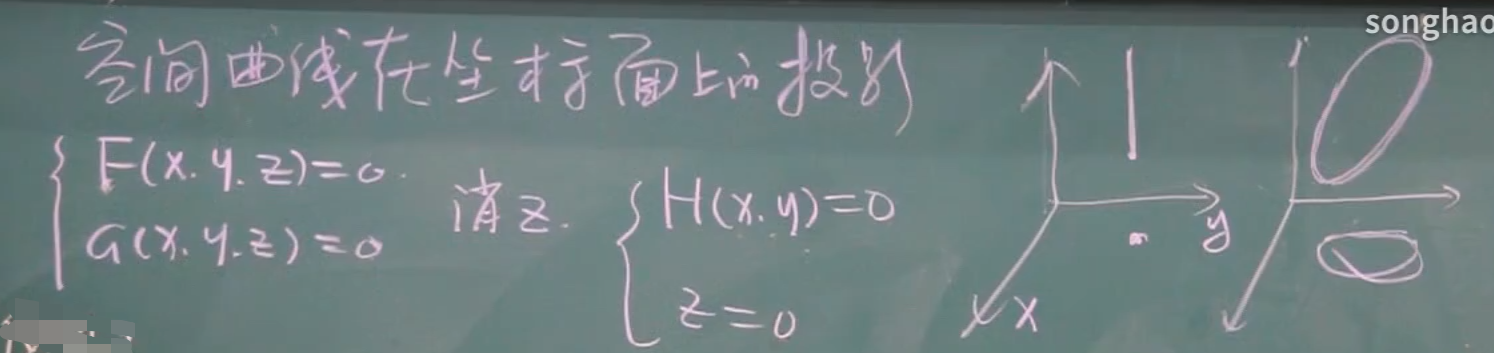 songhao
空间曲线在坐标面上的投影
F(x.y.z)=0.
G(x.y.z)=0
消z.
H(x.y)=0
z=0
y
x